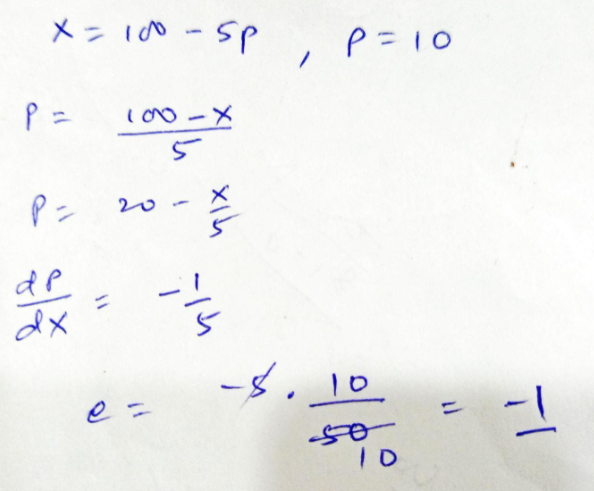 x = 100 - 5p , p = 10
p = (100 - x)/5
p = 20 - x/5
dp/dx = -1/5
e = -5 . 10/50 10 = -1